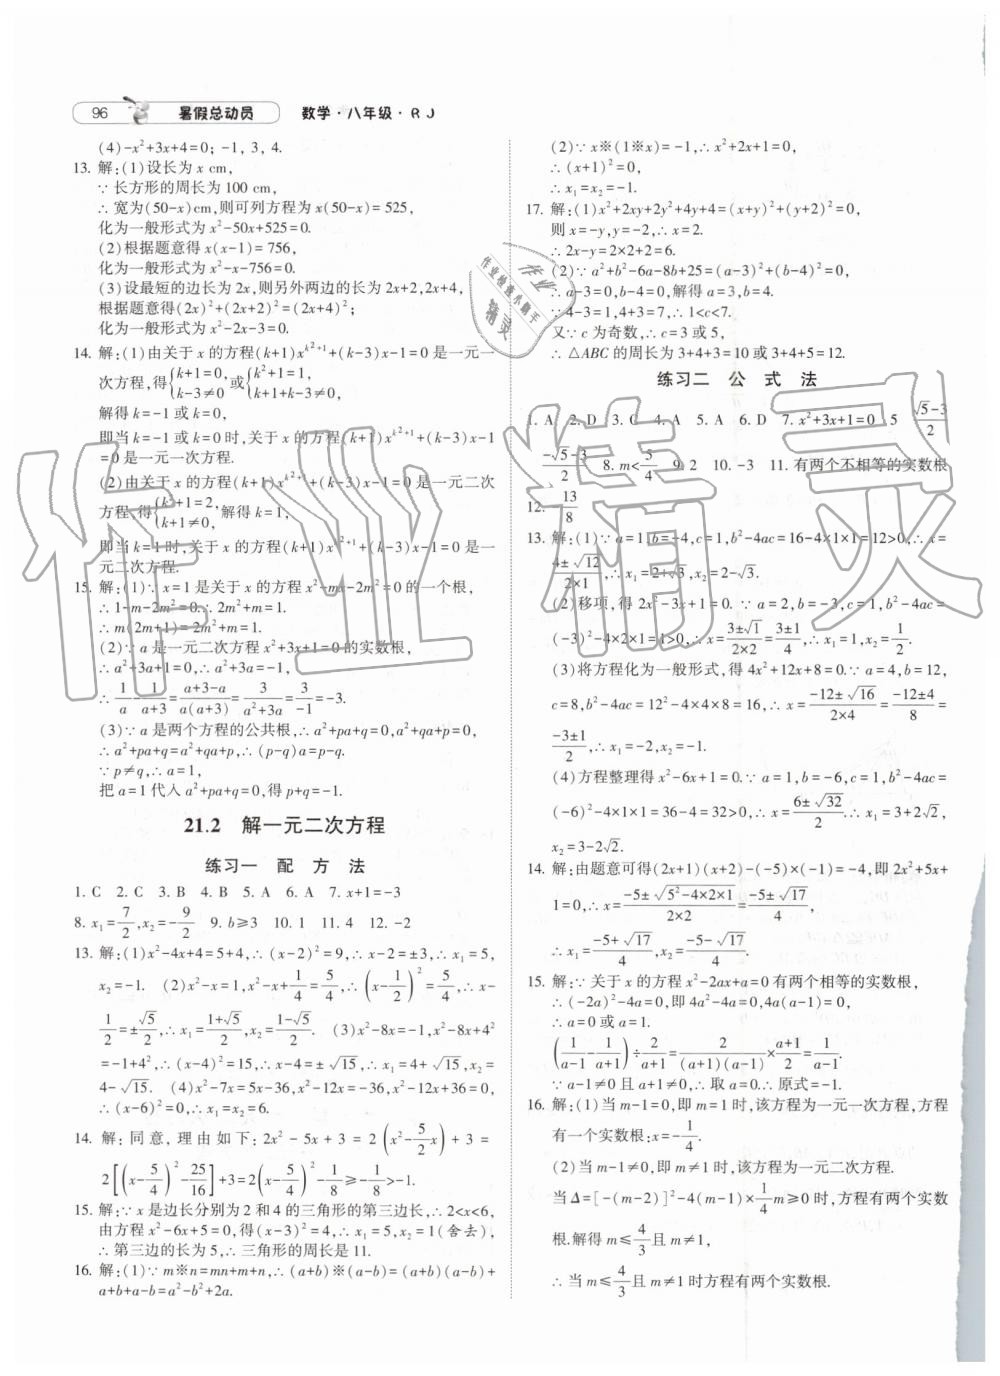 96 暑假总动员 数学·八年级·RJ
(4)-x²+3x+4=0; -1, 3, 4.
13. 解:(1)设长为 x cm,
∵ 长方形的周长为 100 cm,
∴ 宽为(50-x)cm,则可列方程为x(50-x)=525,
化为一般形式为 x²-50x+525=0.
(2)根据题意得 x(x-1)=756,
化为一般形式为 x²-x-756=0.
(3)设最短的边长为 2x,则另外两边的长为 2x+2,2x+4,
根据题意得(2x)²+(2x+2)²=(2x+4)²;
化为一般形式为 x²-2x-3=0.
14. 解:(1)由关于 x 的方程(k+1)x^{k²+1}+(k-3)x-1=0 是一元一
次方程,得{k+1=0, k-3≠0 或{k²+1=1, k+1+k-3≠0,
解得 k=-1 或 k=0,
即当 k=-1 或 k=0 时,关于 x 的方程(k+1)x^{k²+1}+(k-3)x-1
=0 是一元一次方程.
(2)由关于 x 的方程(k+1)x^{k²+1}+(k-3)x-1=0 是一元二次
方程,得{k²+1=2, k+1≠0, 解得 k=1,
即当 k=1 时,关于 x 的方程(k+1)x^{k²+1}+(k-3)x-1=0 是一
元二次方程.
15. 解:(1)∵ x=1 是关于 x 的方程 x²-mx-2m²=0 的一个根,
∴ 1-m-2m²=0.∴ 2m²+m=1.
∴ m(2m+1)=2m²+m=1.
(2)∵ a 是一元二次方程 x²+3x+1=0 的实数根,
∴ a²+3a+1=0,∴ a²+3a=-1,
∴ 1/a-1/(a+3)=(a+3-a)/(a(a+3))=3/(a²+3a)=3/(-1)=-3.
(3)∵ a 是两个方程的公共根,∴ a²+pa+q=0,a²+qa+p=0,
∴ a²+pa+q=a²+qa+p,∴ (p-q)a=p-q.
∵ p≠q,∴ a=1,
把 a=1 代入 a²+pa+q=0,得 p+q=-1.
21.2 解一元二次方程
练习一 配 方 法
1. C 2. C 3. B 4. B 5. A 6. A 7. x+1=-3
8. x₁=7/2,x₂=-9/2 9. b≥3 10. 1 11. 4 12. -2
13. 解:(1)x²-4x+4=5+4,∴ (x-2)²=9,∴ x-2=±3,∴ x₁=5,
x₂=-1. (2)x²-x=1,∴ x²-x+1/4=5/4,∴ (x-1/2)²=5/4,∴ x-
1/2=±√5/2,∴ x₁=(1+√5)/2,x₂=(1-√5)/2. (3)x²-8x=-1,x²-8x+4²
=-1+4²,∴ (x-4)²=15,∴ x-4=±√15,∴ x₁=4+√15,x₂=
4-√15. (4)x²-7x=5x-36,x²-12x=-36,x²-12x+36=0,
∴ (x-6)²=0,∴ x₁=x₂=6.
14. 解: 同意, 理由如下: 2x²-5x+3=2(x²-5/2x)+3=
2[(x-5/4)²-25/16]+3=2(x-5/4)²-1/8≥-1/8>-1.
15. 解:∵ x 是边长分别为 2 和 4 的三角形的第三边长,∴ 2<x<6,
由方程 x²-6x+5=0,得(x-3)²=4,∴ x₁=5,x₂=1(舍去),
∴ 第三边的长为 5,∴ 三角形的周长是 11.
16. 解:(1)∵ m※n=mn+m+n,∴ (a+b)※(a-b)=(a+b)(a-b)+
a+b+a-b=a²-b²+2a.
(2)∵ x※(1※x)=-1,∴ x²+2x+1=0,
∴ (x+1)²=0,
∴ x₁=x₂=-1.
17. 解:(1)x²+2xy+2y²+4y+4=(x+y)²+(y+2)²=0,
则 x=-y,y=-2,∴ x=2.
∴ 2x-y=2×2+2=6.
(2)∵ a²+b²-6a-8b+25=(a-3)²+(b-4)²=0,
∴ a-3=0,b-4=0,解得 a=3,b=4.
∵ 4-3=1,4+3=7,∴ 1<c<7.
又∵ c 为奇数,∴ c=3 或 5,
∴ △ABC 的周长为 3+4+3=10 或 3+4+5=12.
练习二 公 式 法
1. A 2. D 3. C 4. A 5. A 6. D 7. x²+3x+1=0 5 (√5-3)/2
(-√5-3)/2 8. m<5/4 9. 2 10. -3 11. 有两个不相等的实数根
12. -13/8
13. 解:(1)∵ a=1,b=-4,c=1,b²-4ac=16-4×1×1=12>0,∴ x=
(4±√12)/(2×1),∴ x₁=2+√3,x₂=2-√3.
(2)移项,得 2x²-3x+1=0. ∵ a=2,b=-3,c=1,b²-4ac=
(-3)²-4×2×1=1>0,∴ x=(3±√1)/(2×2)=(3±1)/4,∴ x₁=1,x₂=1/2.
(3)将方程化为一般形式,得 4x²+12x+8=0.∵ a=4,b=12,
c=8,b²-4ac=12²-4×4×8=16,∴ x=(-12±√16)/(2×4)=(-12±4)/8=
(-3±1)/2,∴ x₁=-2,x₂=-1.
(4)方程整理得 x²-6x+1=0.∵ a=1,b=-6,c=1,b²-4ac=
(-6)²-4×1×1=36-4=32>0,∴ x=(6±√32)/2.∴ x₁=3+2√2,
x₂=3-2√2.
14. 解:由题意可得(2x+1)(x+2)-(-5)×(-1)=-4,即 2x²+5x+
1=0,∴ x=(-5±√(5²-4×2×1))/(2×2)=(-5±√17)/4,
∴ x₁=(-5+√17)/4,x₂=(-5-√17)/4.
15. 解:∵ 关于 x 的方程 x²-2ax+a=0 有两个相等的实数根,
∴ (-2a)²-4a=0,即 4a²-4a=0,4a(a-1)=0,
∴ a=0 或 a=1.
(1/(a-1)-1/(a+1))÷2/(a+1)=2/((a+1)(a-1))×(a+1)/2=1/(a-1).
∵ a-1≠0 且 a+1≠0,∴ 取 a=0.∴ 原式=-1.
16. 解:(1)当 m-1=0,即 m=1 时,该方程为一元一次方程,方程
有一个实数根:x=-1/4.
(2)当 m-1≠0,即 m≠1 时,该方程为一元二次方程.
当 Δ=[-(m-2)]²-4(m-1)×1/4m≥0 时,方程有两个实数
根.解得 m≤4/3且 m≠1.
∴ 当 m≤4/3且 m≠1 时方程有两个实数根.
作业精灵
作业检查小助手
作业
精灵